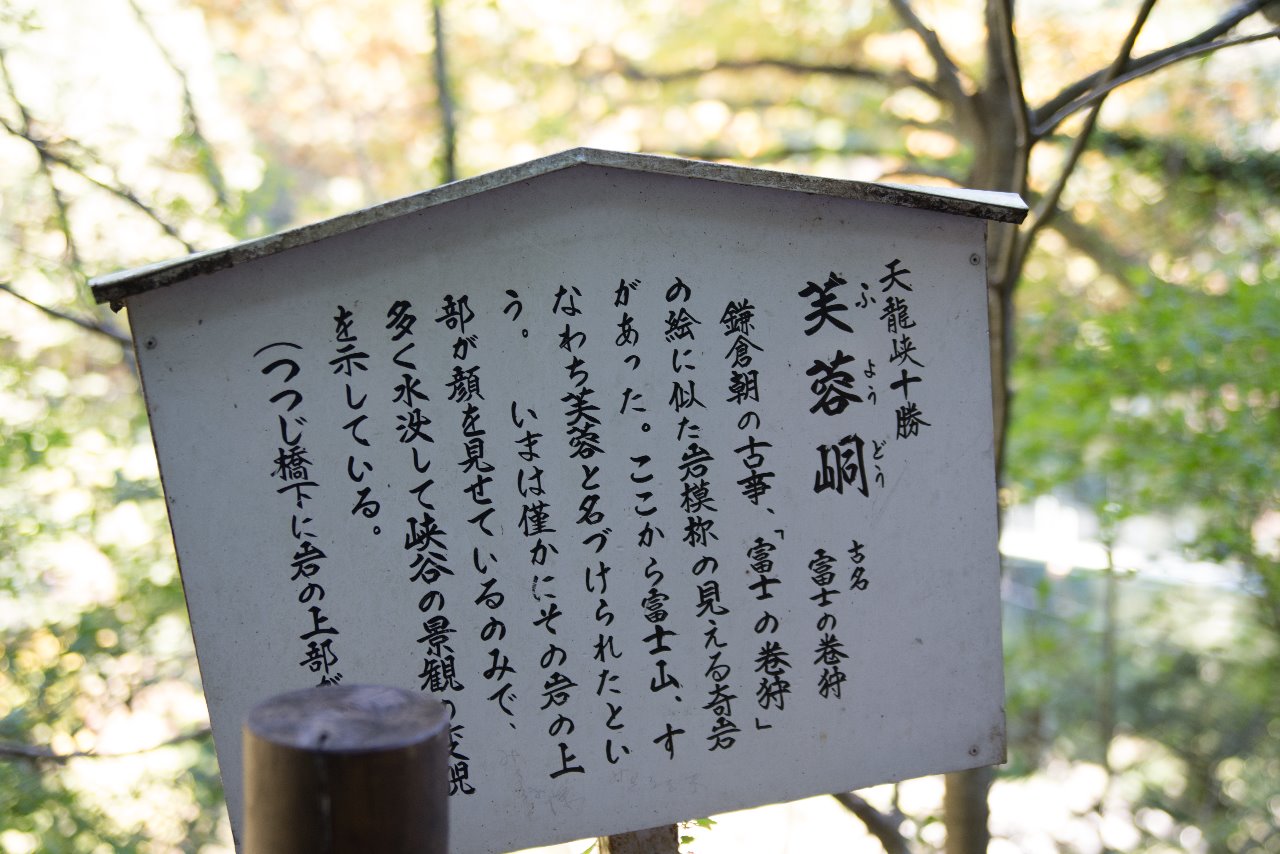 天龍峡十勝
芙蓉峒
ふようどう
古名
富士の巻狩
鎌倉朝の古事、「富士の巻狩」
の絵に似た岩模様の見える奇岩
があった。ここから富士山、す
なわち芙蓉と名づけられたとい
う。 いまは僅かにその岩の上
部が顔を見せているのみで、
多く水没して峡谷の景観の変貌
を示している。
(つつじ橋下に岩の上部が